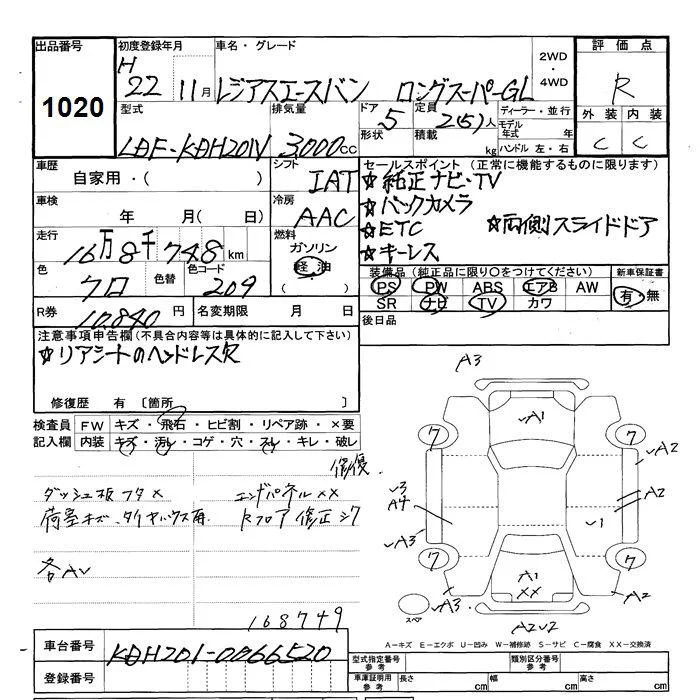 出品番号 初度登録年月 車名・グレード 2WD・4WD 評価点
1020 H 22 11月 レジアスエースバン ロングスーパーGL R
型式 排気量 ドア 定員 ディーラー・並行 外装 内装
LDF-KDH201V 3,000cc 5 2(5)人 モデル年式 年 C C
形状 積載 kg ハンドル 左・右
車歴 シフト セールスポイント (正常に機能するものに限ります)
自家用・( ) IAT ☆純正ナビ・TV
車検 冷房 ☆バックカメラ
年 月( 日) AAC ☆ETC ☆両側スライドドア
走行 燃料 ☆キーレス
16万8千748km ガソリン
色 色替 色コード 軽油 装備品 (純正品に限り○をつけてください) 新車保証書
クロ 209 ( ) PS PW ABS エアB AW 有・無
R券 10,840円 名変期限 月 日 SR ナビ TV カワ
注意事項申告欄(不具合内容等は具体的に記入して下さい) 後日品
☆リアシートのヘッドレス欠
修復歴 有 〔箇所
検査員記入欄 FW キズ・飛石・ヒビ割・リペア跡・×要
内装 キズ・汚れ・コゲ・穴・スレ・キレ・破レ
修復
ダッシュ板フタ× エンドパネル××
荷室キズ、タイヤハウス有 Rフロア修正シワ
各AV
168749
A3
A1
7 7
A2
3
A4
A2
1
A3
7 7
A1
××
A3 A2
スペア
A2 2
A-キズ E-エクボ U-凹み W-補修跡 S-サビ C-腐食 XX-交換済
車台番号 KDH201-0066520 型式指定番号 参考 類別区分番号 参考
登録番号 車庫証明用 参考 長さ cm 幅 cm 高さ cm